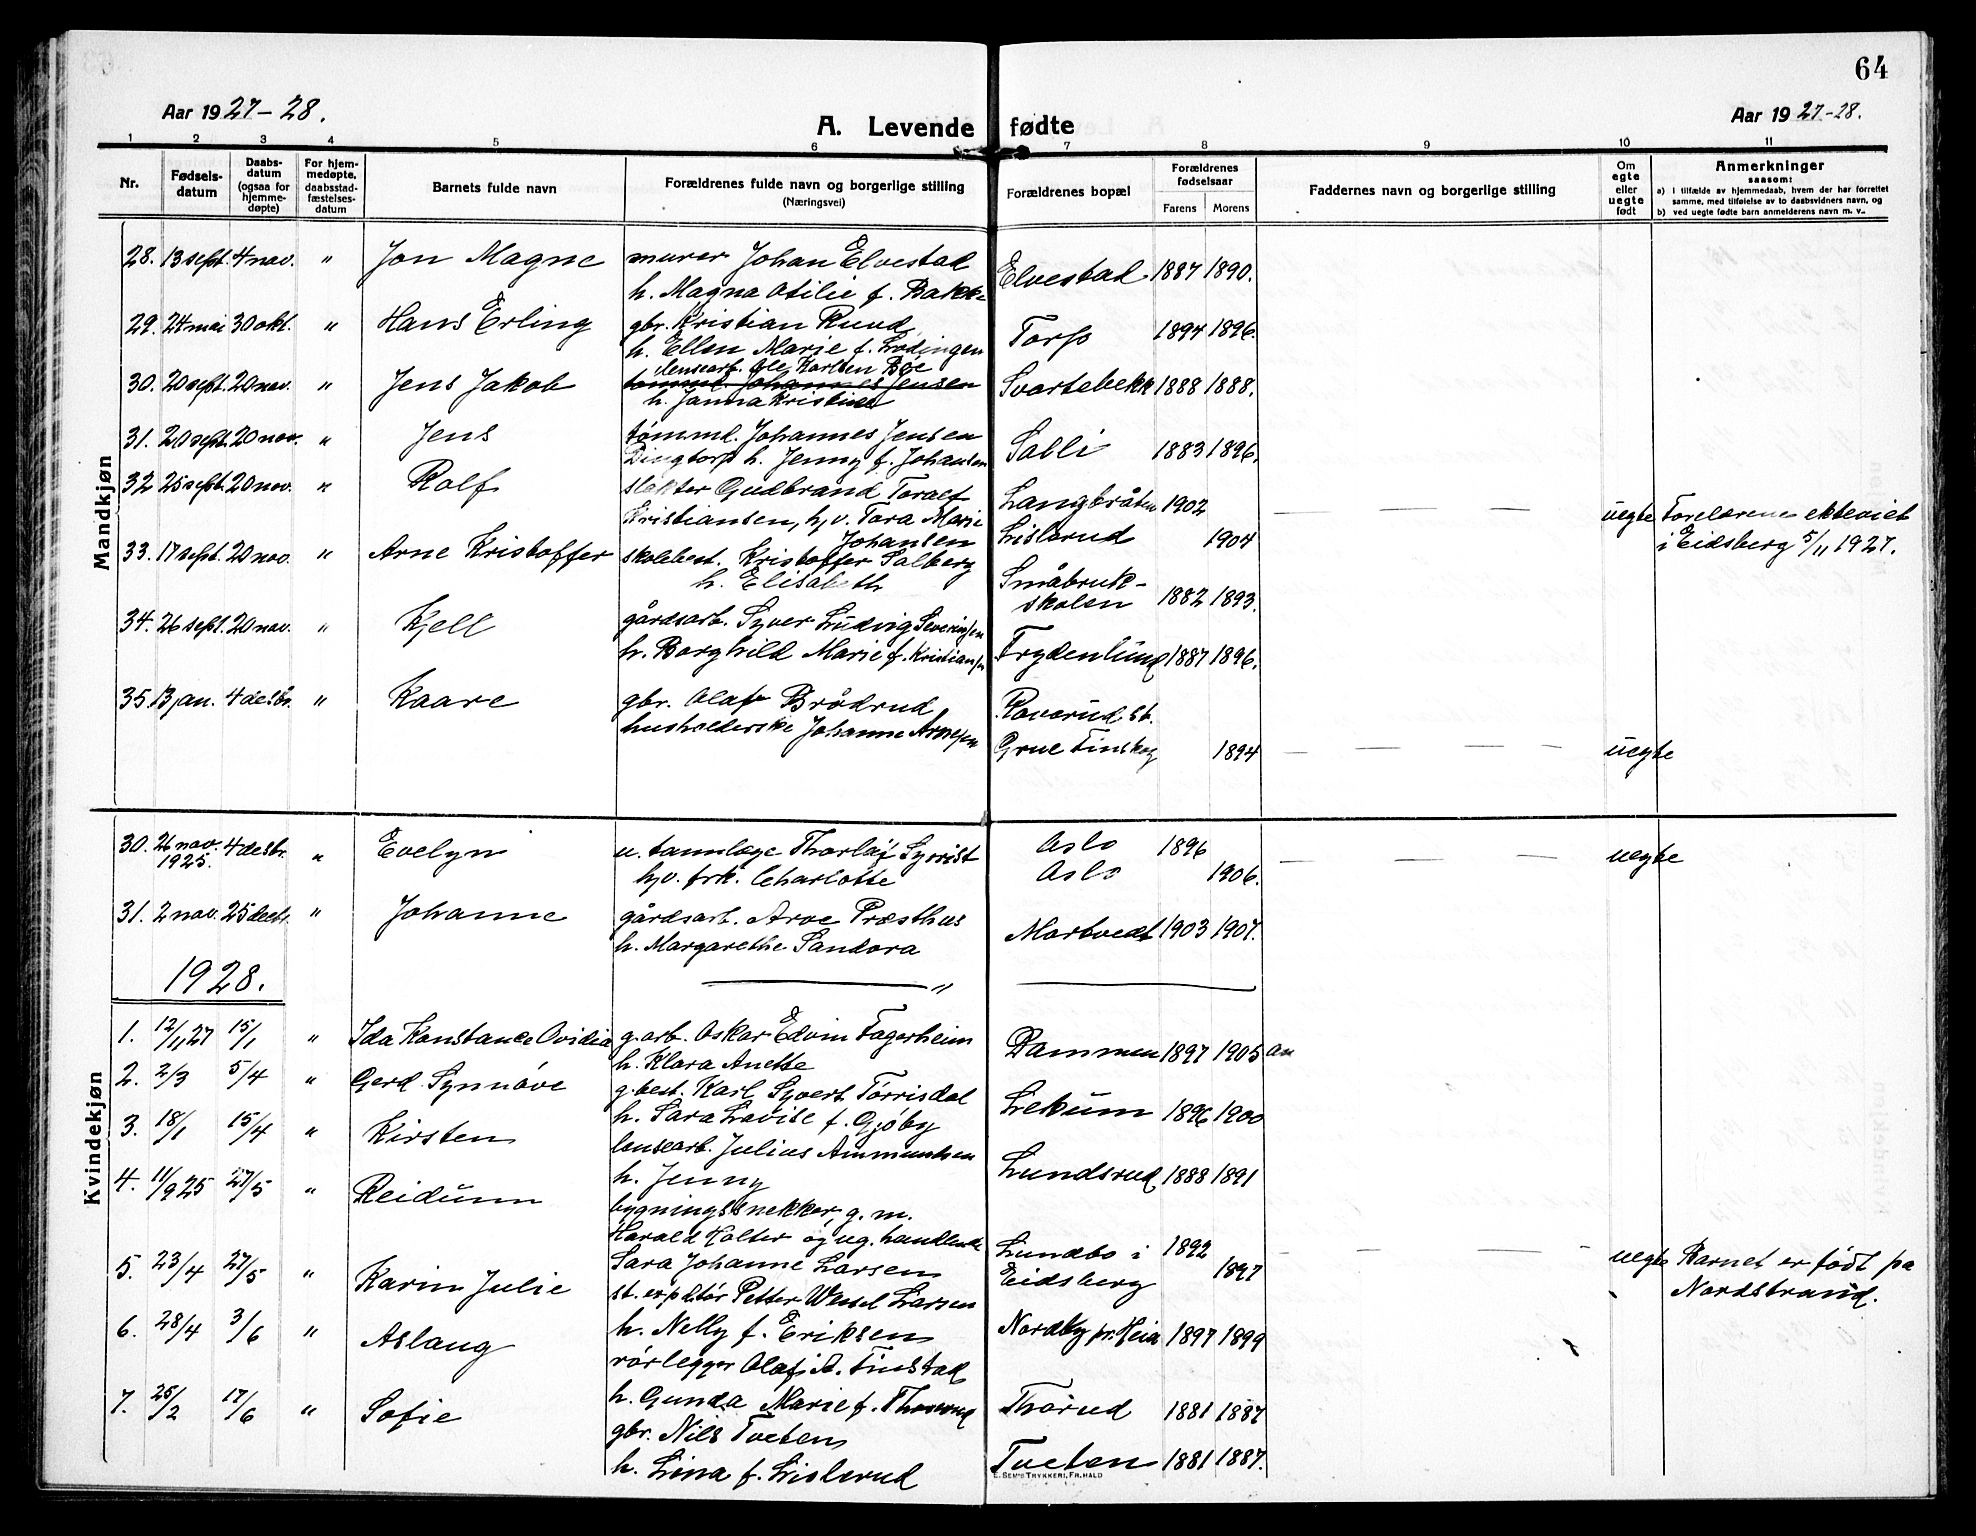 64
Aar 1927-28.
A. Levende fødte
Aar 1927-28.
1 2 3 4 5 6 7 8 9 10 11
Nr.
Fødsels-
datum
Daabs-
datum
(ogsaa for
hjemme-
døpte)
For hjem-
medøpte,
daabsstad-
fæstelses-
datum
Barnets fulde navn
Forældrenes fulde navn og borgerlige stilling
(Næringsvei)
Forældrenes bopæl
Forældrenes
fødselsaar
Farens Morens
Faddernes navn og borgerlige stilling
Om
egte
eller
uegte
født
Anmerkninger
saasom:
a) i tilfælde av hjemmedaab, hvem der har forrettet
samme, med tilføielse av to daabsvidners navn, og
b) ved uegte fødte barn anmelderens navn m. v.
Mandkjøn
28. 13 sept. 4 nov. " Jon Magne murer Johan Elvestad
h. Magna Otilie f. Bakke Elvestad 1887 1890.
29. 24 mai 30 okt. " Hans Erling gbr. Kristian Ruud
h. Ellen Marie f. Lødingen Torp 1894 1896.
30. 20 sept. 20 nov. " Jens Jakob lensearb. Ole Karlsen Bøe
tømmd. Johannes Jensen
h. Janna Kristine Svartebekk 1888 1888.
31. 20 sept. 20 nov. " Jens tømmd. Johannes Jensen
Dingtorp h. Jenny f. Johansen Salli 1883 1896.
32 25 sept. 20 nov. " Rolf slakter Gudbrand Toralf Langbråten 1902
Kristiansen, hv. Tora Marie
Johansen Lislerud 1904 uegte Forelærene ekteviet
i Eidsberg 5/11 1927.
33. 17 sept. 20 nov. " Arne Kristoffer skolebest. Kristoffer Salberg
h. Elisabeth Småbruk-
skolen 1882 1893.
34. 26 sept. 20 nov. " Kjell gårdsarb. Syver Ludvig Severinsen
h. Borghild Marie f. Kristiansen Frydenlund 1887 1896.
35. 13 jan. 4 desbr. " Kaare gbr. Olaf Brødrud Roverud st.
husholderske Johanne Arnesen Grue Finskog 1894 uegte
Kvindekjøn
30. 26 nov. 1925. 4 desbr. " Evelyn u. tannlæge Thorleif Syrrist Oslo 1896
hv. frk. Charlotte Oslo 1906. uegte
31. 2 nov. 25 decbr. " Johanne gårdsarb. Arve Præsthus
h. Margarethe Sandora Mortvedt 1903 1907.
1928.
1. 12/11 27 15/1 " Ida Konstance Ovidia g.arb. Oskar Edvin Fagerheim
h. Klara Anette Dammen 1897 1905 an
2. 2/3 5/4 " Gerd Synnøve g.best. Karl Syvert Torrisdal
h. Sara Lovise f. Gjøby Lekum 1896 1900
3. 18/1 15/4 " Kirsten lensearb. Julius Ammundsen
h. Jenny Lundsrud 1888 1891
4. 11/9 25 27/5 " Reidunn bygningssnekker, g. m.
Harald Holter og ug. handlende
Sara Johanne Larsen Lundbo i
Eidsberg 1892 1897 uegte Barnet er født på
Nordstrand.
5. 23/4 27/5 " Karin Julie st. ekspditør Petter Wessel Larsen
h. Nelly f. Eriksen Nordby pr. Heia 1897 1899
6. 28/4 3/6 " Aslaug rørlegger Olaf A. Finstad
h. Gunda Marie f. Thorerud Thørud 1881 1887
7. 25/2 17/6 " Sofie gbr. Nils Tveten
h. Lina f. Lislerud Tveten 1881 1887.
E. SEM'S TRYKKERI, FR.HALD